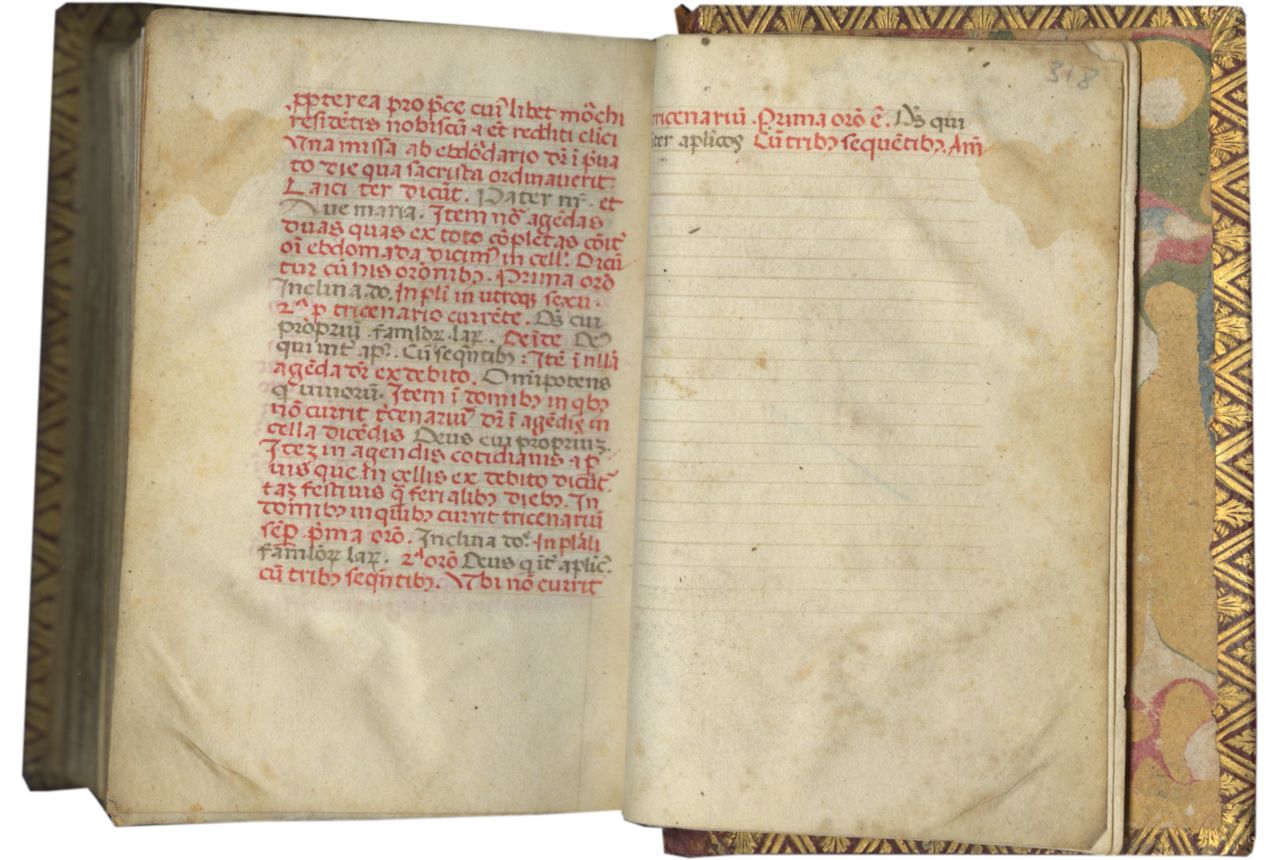 ꝓpterea pro p̄ce cui᷒libet mo̅chi
reside̅tis nobiscu̅ ⁊ et redditi clici
Vna missa ab ebdo̅dario dr̅ i̅ p̄ua
to die qua sacrista ordinauerit.
Laici ter dicu̅t. Pater nr̅. et
Aue maria. Item no̅ age̅das
duas quas ex toto co̅pletas co̅it᷑
oi̅ ebdomada dicim᷒ in cell̕. Dicu̅
tur cu̅ his oro̅nibꝫ. Prima oro̅
Inclina. do. In pli̅ in utroqꝫ sexu.
2ᵃ p tricenario curre̅te. Ds̅ cui
propriu̅. famlo̅ꝝ laꝝ. Dei̅de De᷒
qui int̅ ap̅. Cu̅ seqn̅tibꝫ: Ite̅ i̅ nlla̅
age̅da dr̅ ex debito. Om̅ipotens
q̅ uiuoru̅. Item i̅ domibꝫ in qbꝫ
no̅ currit tcenariu̅ dr̅ i̅ age̅dis in
cella dice̅dis Deus cui propriuꝫ.
Iteꝫ in agendis cotidianis ⁊ p̄
uis que in cellis ex debito dicu̅t᷑
taꝫ festiuis q̅ ferialibꝫ diebꝫ. In
domibꝫ in quibꝫ currit tricenariu̅
sep̅. p̄ma oro̅. Inclina do̅ᵉ In plali
famlo̅ꝝ laꝝ. 2ᵃ oro̅ Deus q i̅t᷑ aplic̅.
cu̅ tribꝫ seqn̅tibꝫ. Vbi no̅ currit
318
tricenariu̅. Prima oro̅ e̅. Ds̅ qui
iter aplicos Cu̅ tribꝫ seque̅tibꝫ. Am̅